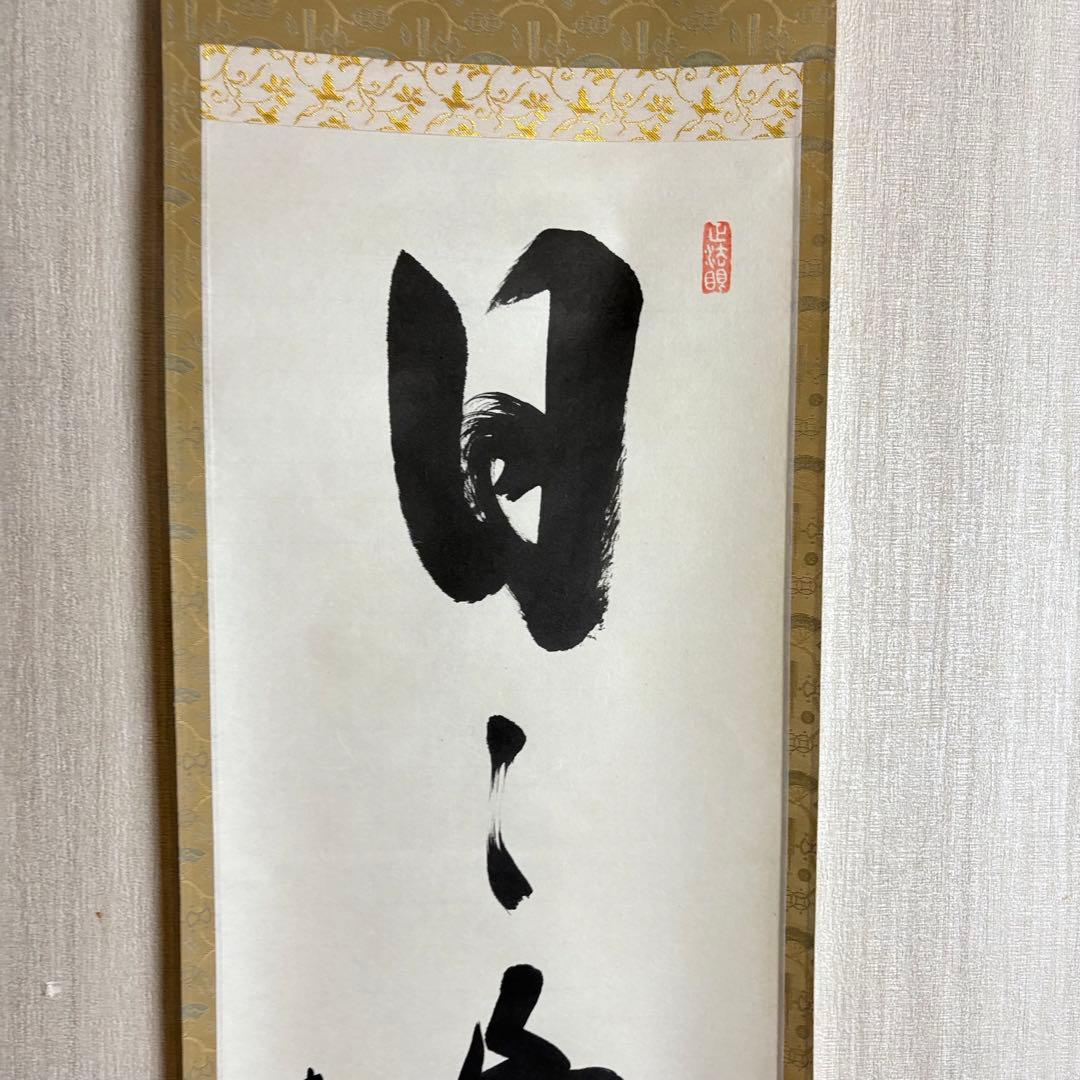 日々
正法眼